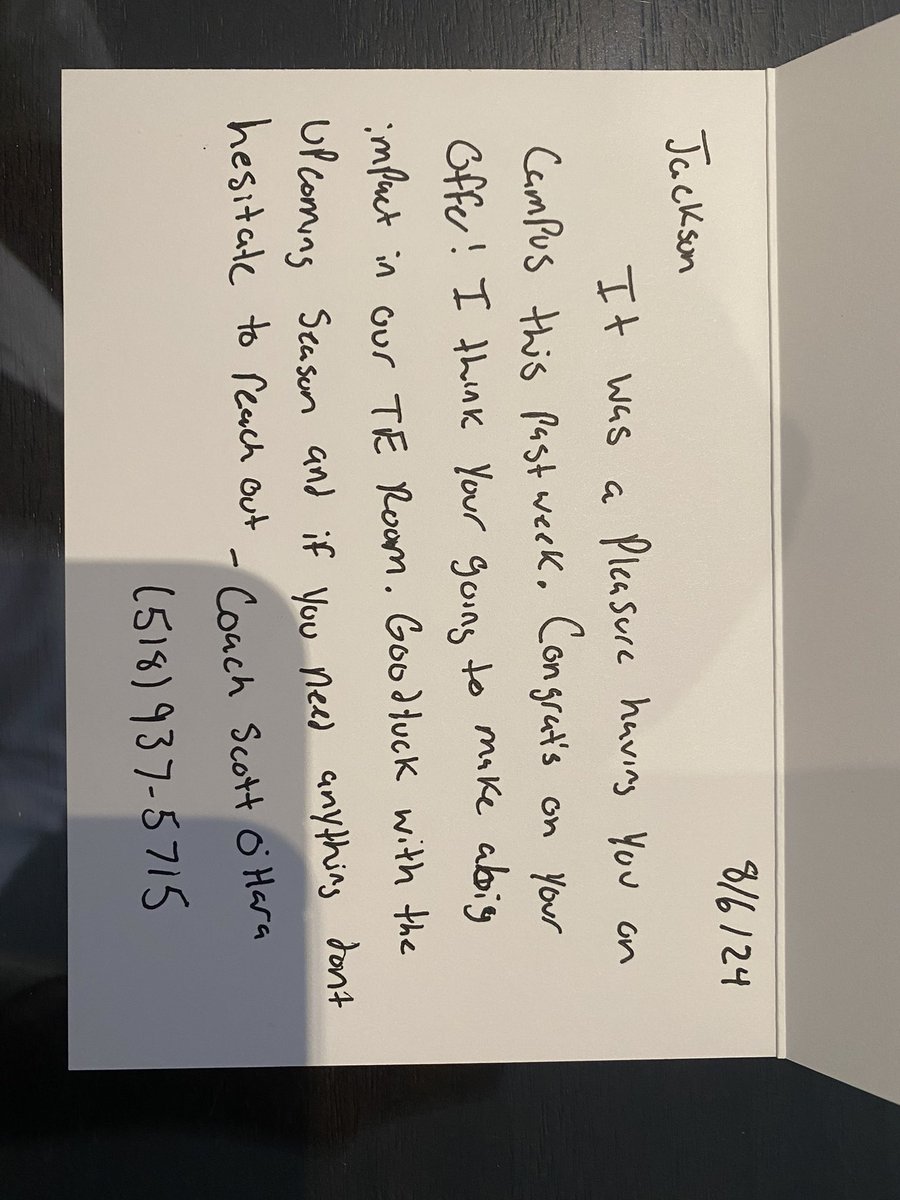 8/6/24
Jackson
It was a Pleasure having You on
Campus this past week. Congrat's on your
Offer! I think your going to make a big
impact in our TE Room. Good luck with the
Upcoming Season and if You need anything dont
hesitate to reach out - Coach Scott O'Hara
(518) 937-5715